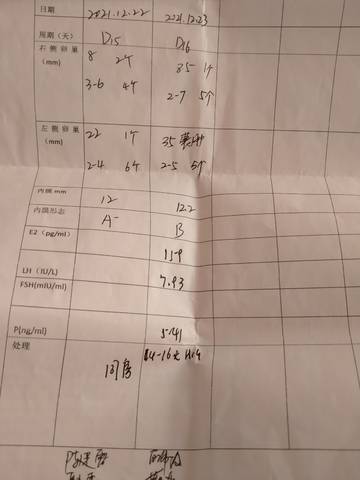 日期 2021.12.22 2021.12.23
周期（天） D15 D16
右侧卵巢 8 2个 85 1个
(mm)
3-6 4个 2-7 5个
左侧卵巢 22 1个 35
(mm)
2-4 6个 2-5 5个
内膜 mm 12 12.2
内膜形态 A- B
E2（pg/ml） 159
LH（IU/L） 7.93
FSH(mIU/ml)
P(ng/ml) 5.141
处理 14-16天
同房